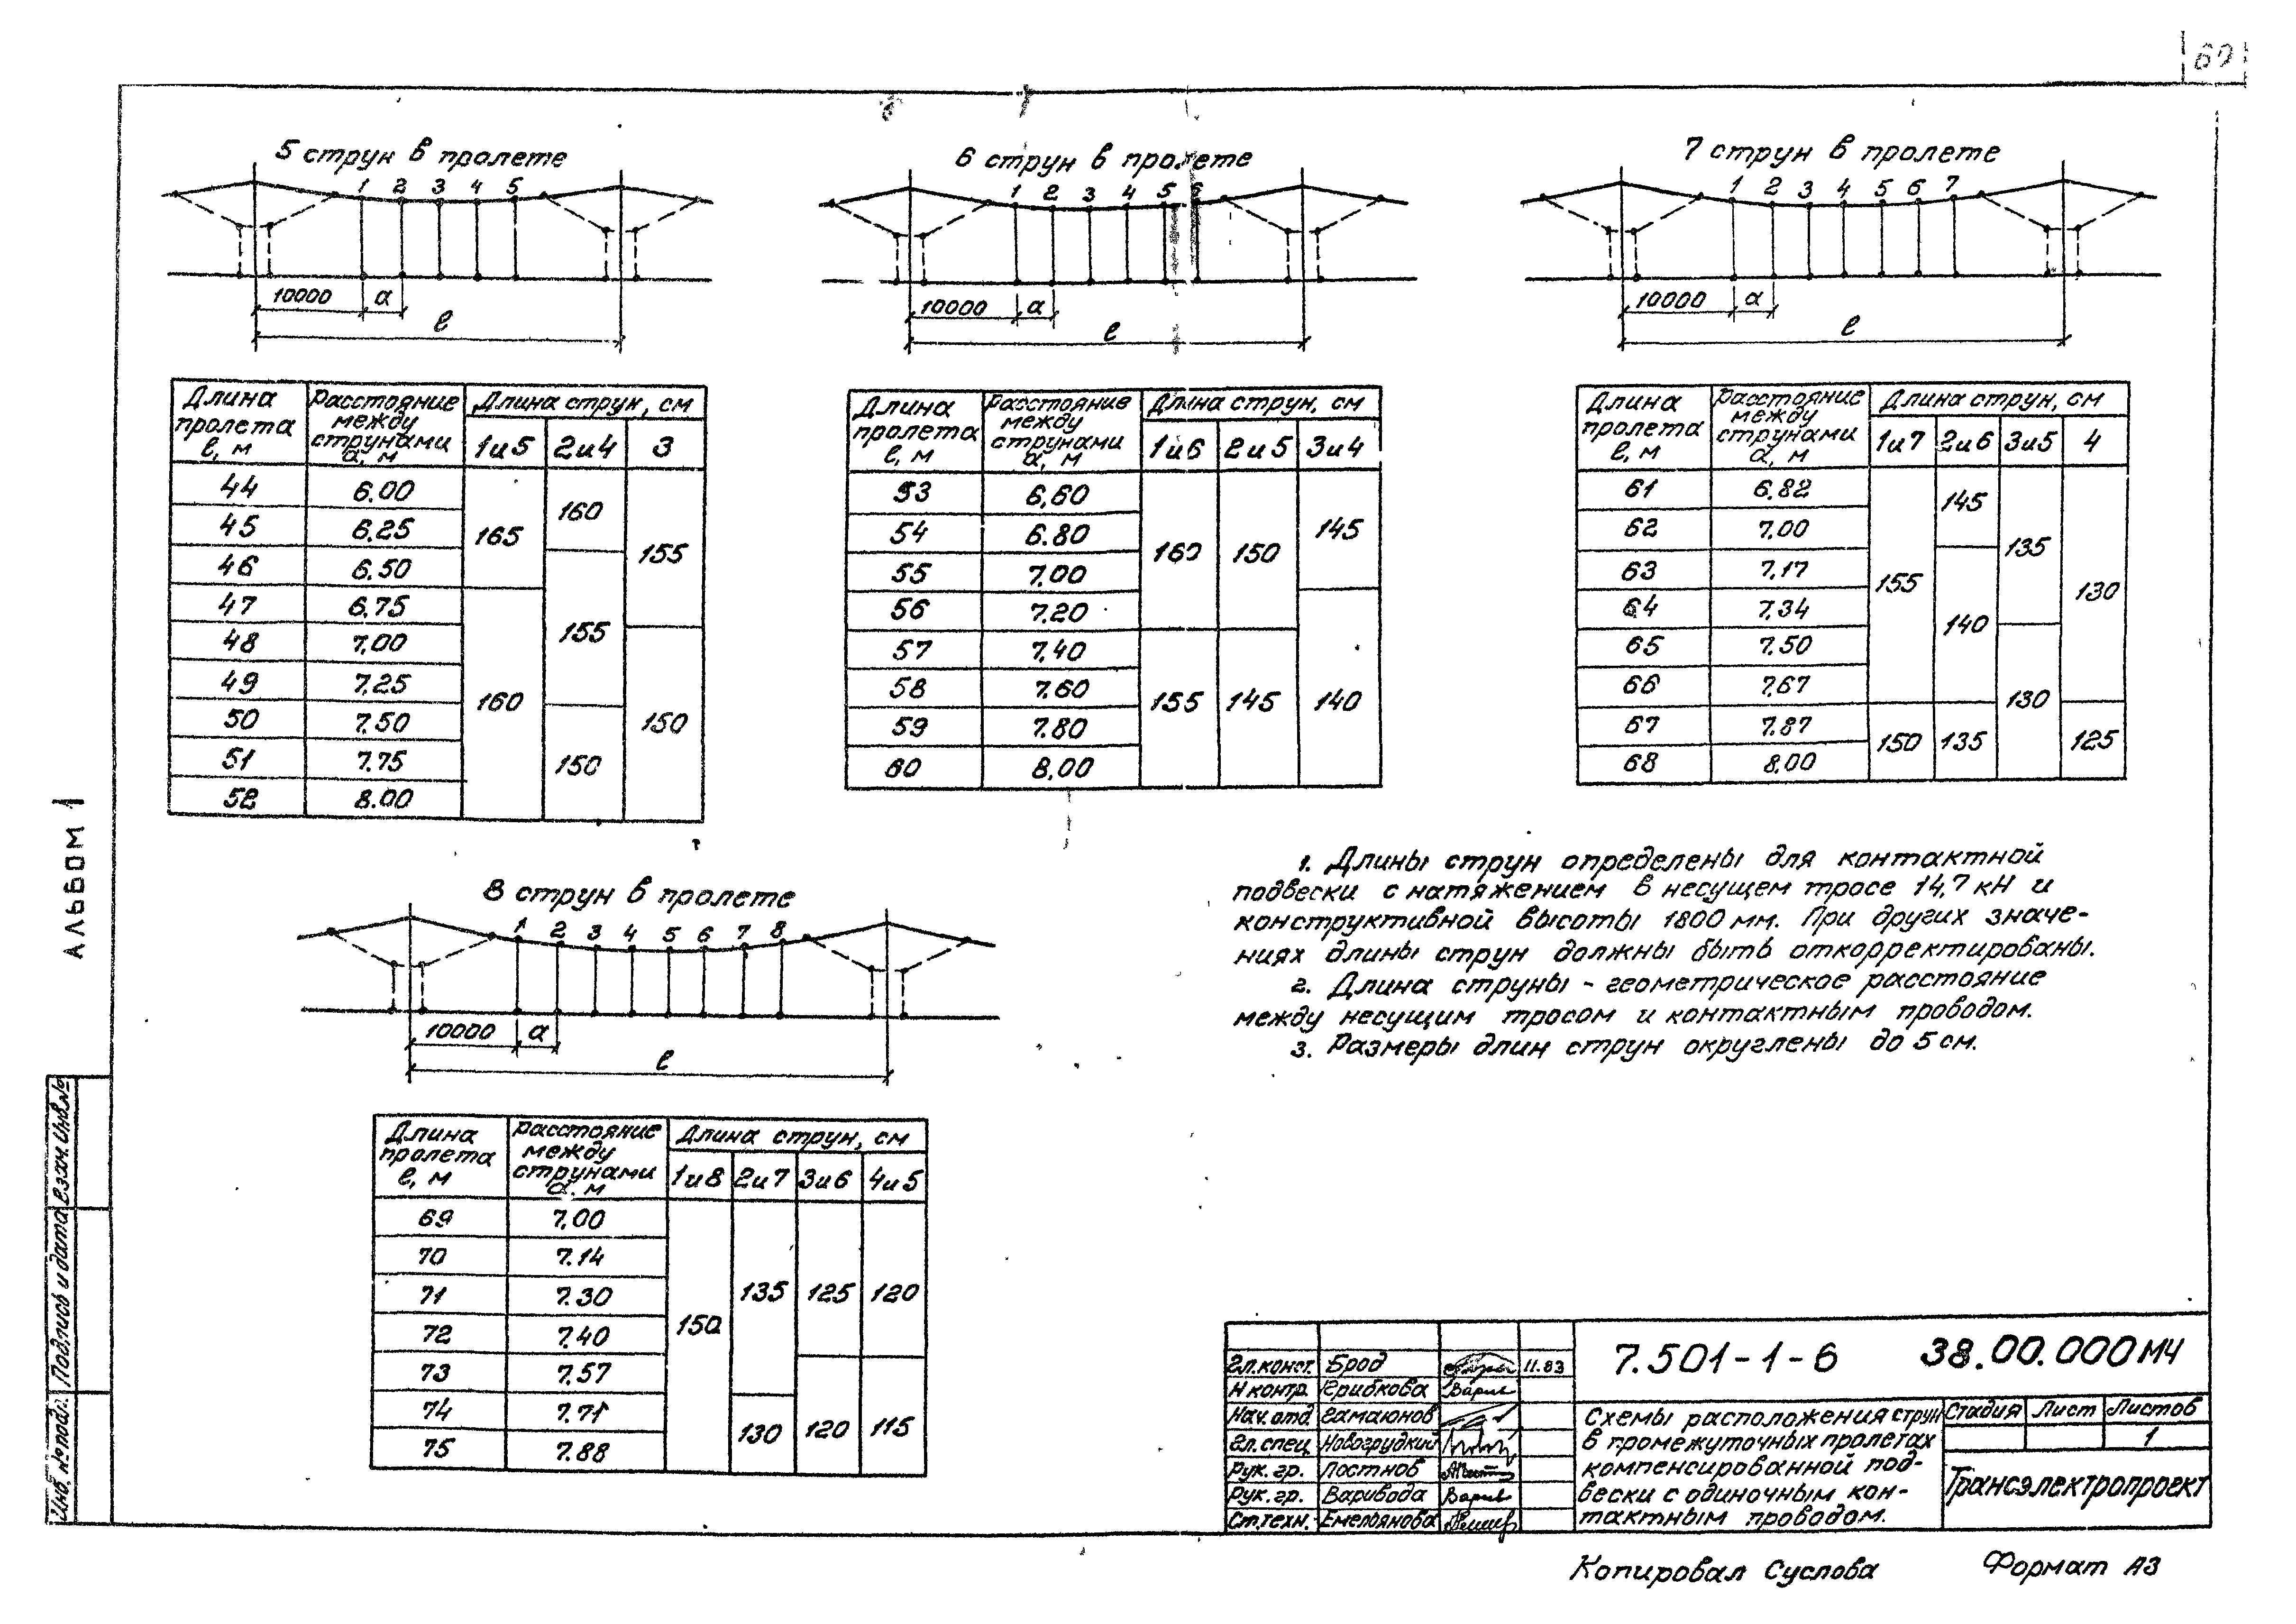 69
5 струн в пролете
1 2 3 4 5
10000 a
l
6 струн в пролете
1 2 3 4 5 6
10000 a
l
7 струн в пролете
1 2 3 4 5 6 7
10000 a
l
Длина пролета l, м
Расстояние между струнами a, м
Длина струн, см
1и5 2и4 3
44 6.00
45 6.25
46 6.50
47 6.75
48 7.00
49 7.25
50 7.50
51 7.75
52 8.00
165 160
160 155 150
155 150
Длина пролета l, м
Расстояние между струнами a, м
Длина струн, см
1и6 2и5 3и4
53 6,60
54 6.80
55 7.00
56 7.20
57 7.40
58 7.60
59 7.80
60 8,00
160 155
150 145
145 140
Длина пролета l, м
Расстояние между струнами a, м
Длина струн, см
1и7 2и6 3и5 4
61 6.82
62 7.00
63 7,17
64 7,34
65 7.50
66 7,67
67 7.87
68 8,00
155 150
145 140 135
135 130
130 125
8 струн в пролете
1 2 3 4 5 6 7 8
10000 a
l
Длина пролета l, м
Расстояние между струнами a, м
Длина струн, см
1и8 2и7 3и6 4и5
69 7.00
70 7.14
71 7.30
72 7.40
73 7.57
74 7.71
75 7.88
150
135 130
125 120
120 115
1. Длины струн определены для контактной
подвески с натяжением в несущем тросе 14,7 кН и
конструктивной высоты 1800 мм. При других значе-
ниях длины струн должны быть откорректированы.
2. Длина струны - геометрическое расстояние
между несущим тросом и контактным проводом.
3. Размеры длин струн округлены до 5 см.
АЛЬБОМ 1
Взам. Инв.№
Подпись и дата
Инв. № подл.
Гл.конст. Брод 11.83
Н контр. Грибкова
Нач. отд Гамаюнов
Гл. спец Новогрудкий
Рук. гр. Постнов
Рук. гр. Варивода
Ст.техн. Емельянова
7.501-1-6 38.00.000МЧ
Схемы расположения струн
в промежуточных пролетах
компенсированной под-
вески с одиночным кон-
тактным проводом.
Стадия Лист Листов
1
Трансэлектропроект
Копировал Суслова
Формат А3